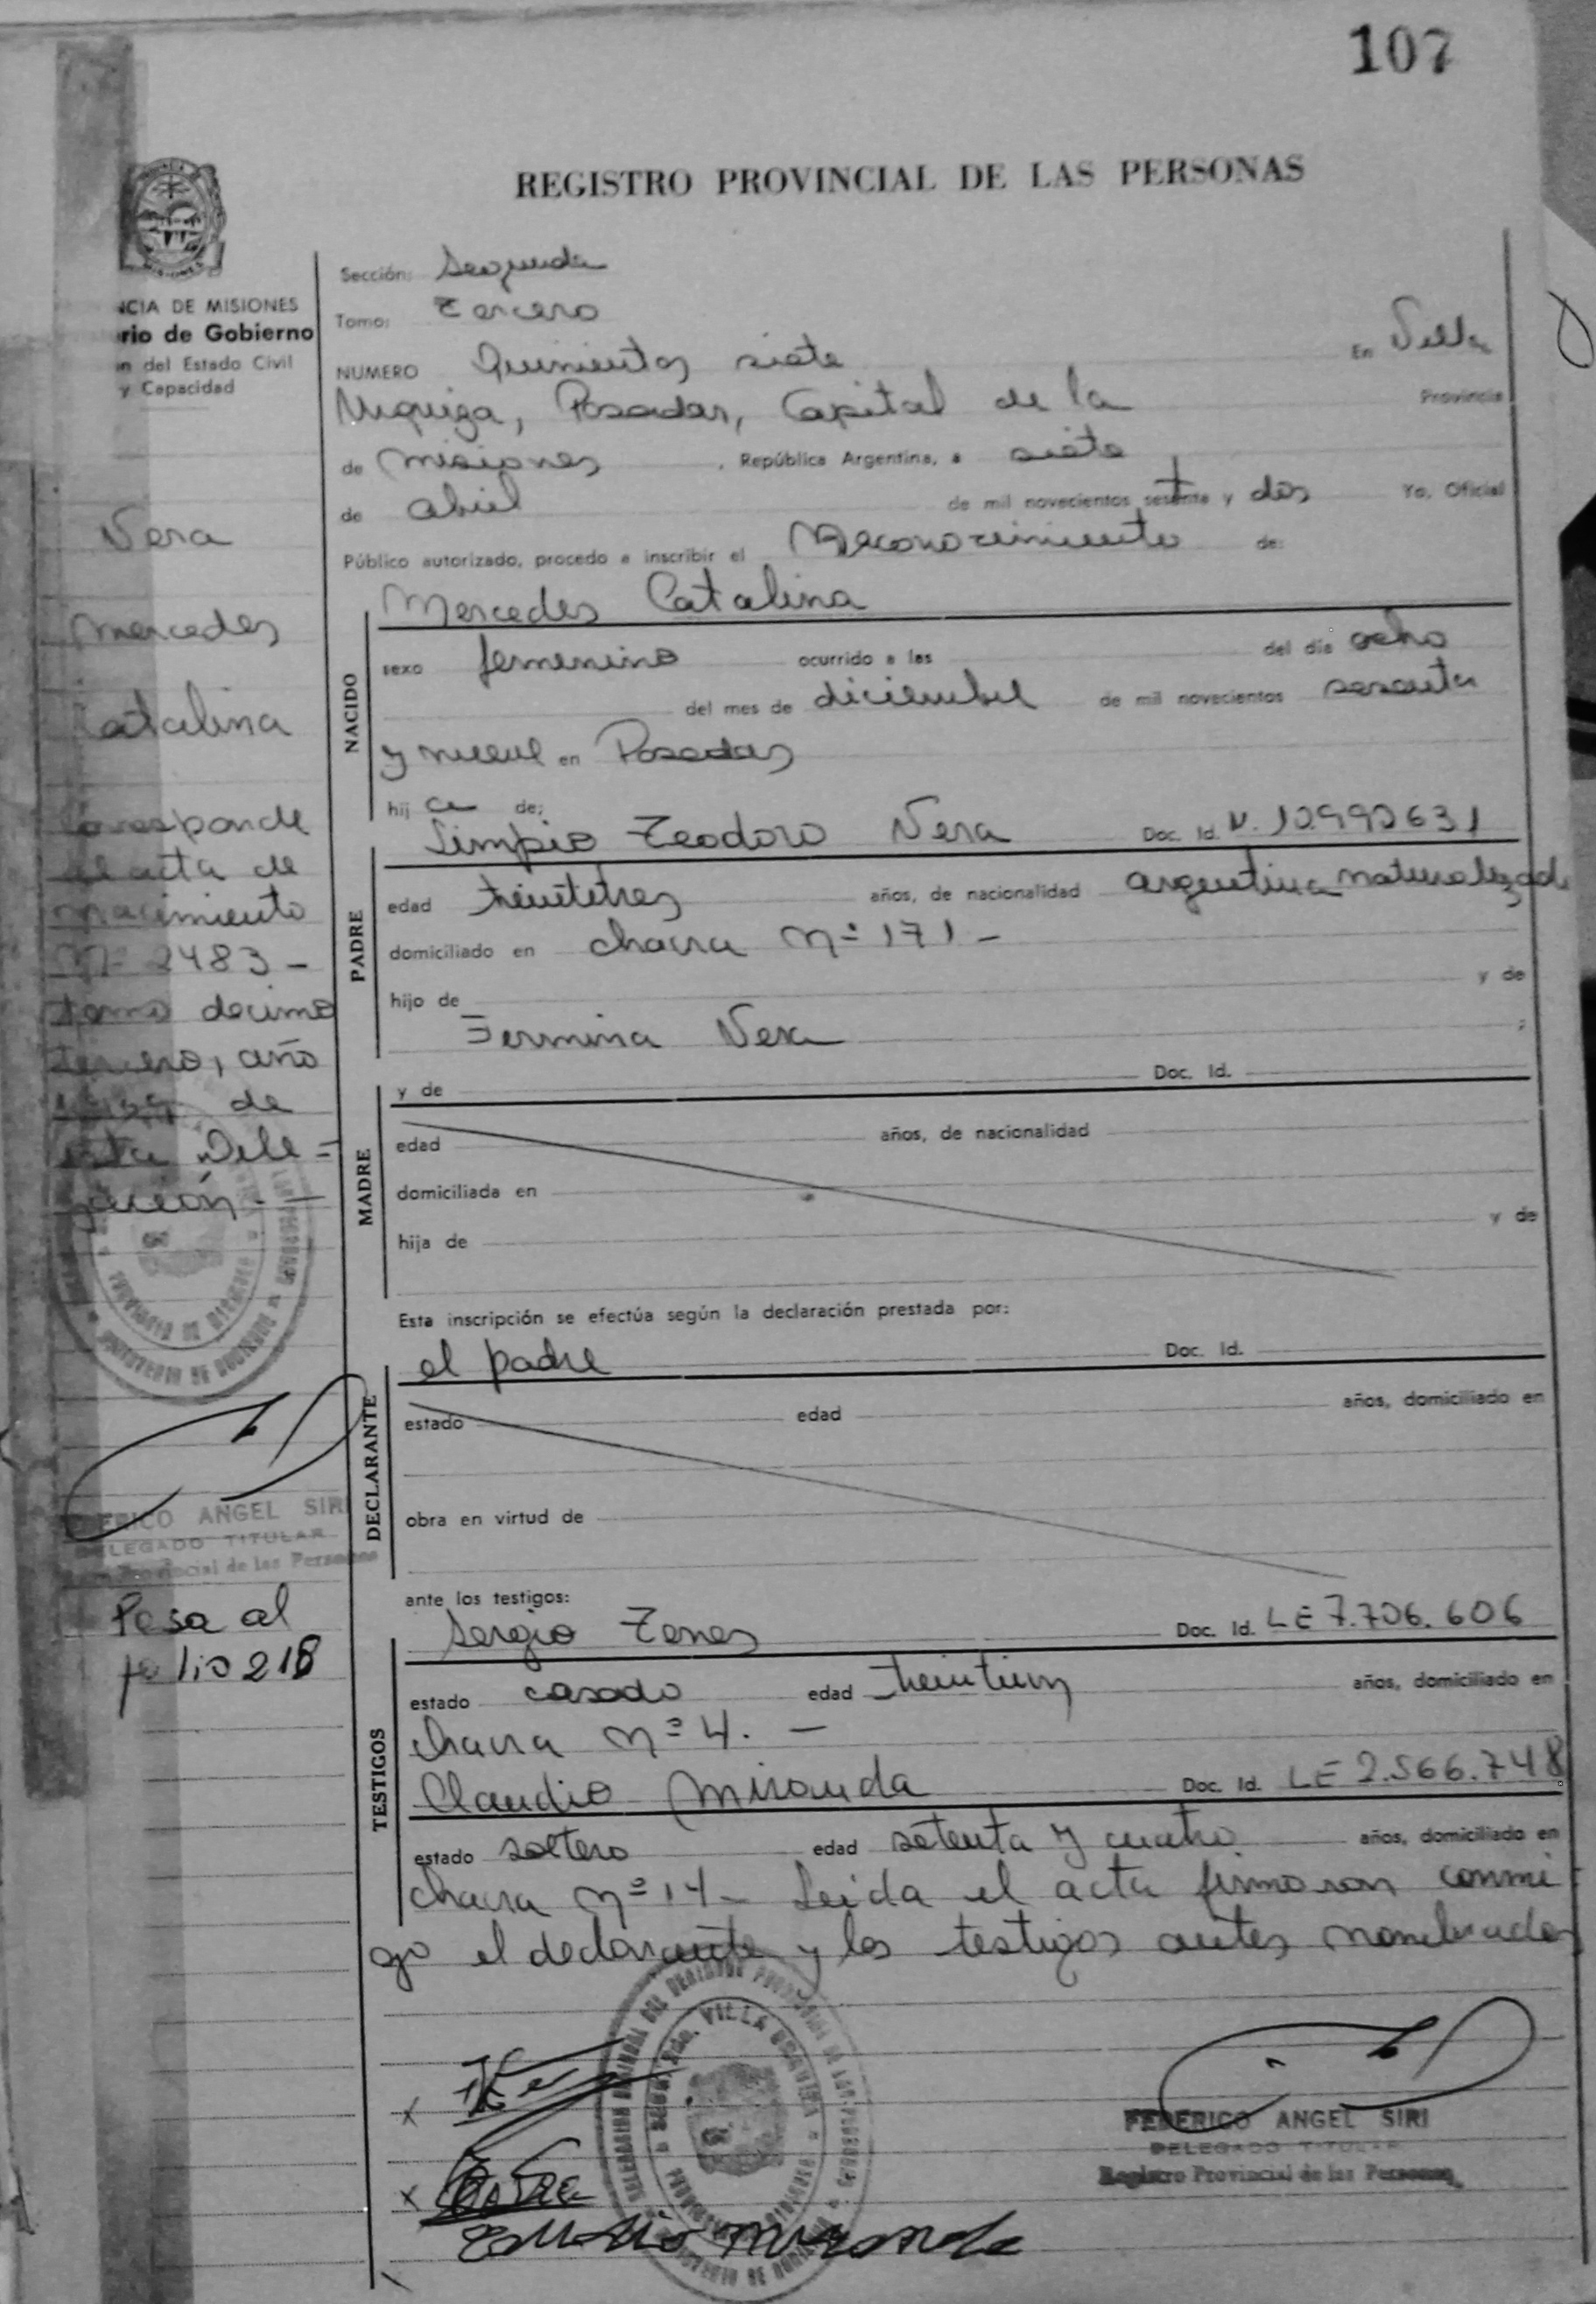 107
REGISTRO PROVINCIAL DE LAS PERSONAS
NCIA DE MISIONES
rio de Gobierno
n del Estado Civil
y Capacidad
Vera
Mercedes
Catalina
Corresponde
al acta de
nacimiento
Nº 2483 -
tomo decimo
tercero, año
de
esta Dele=
gación. -
FEDERICO ANGEL SIRI
DELEGADO TITULAR
Provincial de las Personas
Pasa al
folio 218
Sección: Segunda
Tomo: Tercero
NUMERO Quinientos siete En Villa
Urquiza, Posadas, Capital de la Provincia
de Misiones, República Argentina, a siete
de abril de mil novecientos setenta y dos Yo, Oficial
Público autorizado, procedo a inscribir el Reconocimiento de:
NACIDO
Mercedes Catalina
sexo femenino ocurrido a las del día ocho
del mes de diciembre de mil novecientos sesenta
y nueve en Posadas
hij a de:
PADRE
Limpio Teodoro Vera Doc. Id. N. 10.990.631
edad treintitres años, de nacionalidad argentina naturalizado
domiciliado en chacra Nº 171 -
hijo de y de
Fermina Vera ;
MADRE
y de Doc. Id.
edad años, de nacionalidad
domiciliada en
hija de y de
Esta inscripción se efectúa según la declaración prestada por:
DECLARANTE
el padre Doc. Id.
estado edad años, domiciliado en
obra en virtud de
ante los testigos:
TESTIGOS
Sergio Doc. Id. LE 7.706.606
estado casado edad treintiun años, domiciliado en
chacra Nº 4. -
Claudio Miranda Doc. Id. LE 2.566.748
estado soltero edad setenta y cuatro años, domiciliado en
chacra Nº 14 - Leida el acta firmaron conmi
go el declarante y los testigos antes nombrados
x
x
Miranda
FEDERICO ANGEL SIRI
DELEGADO TITULAR
Registro Provincial de las Personas